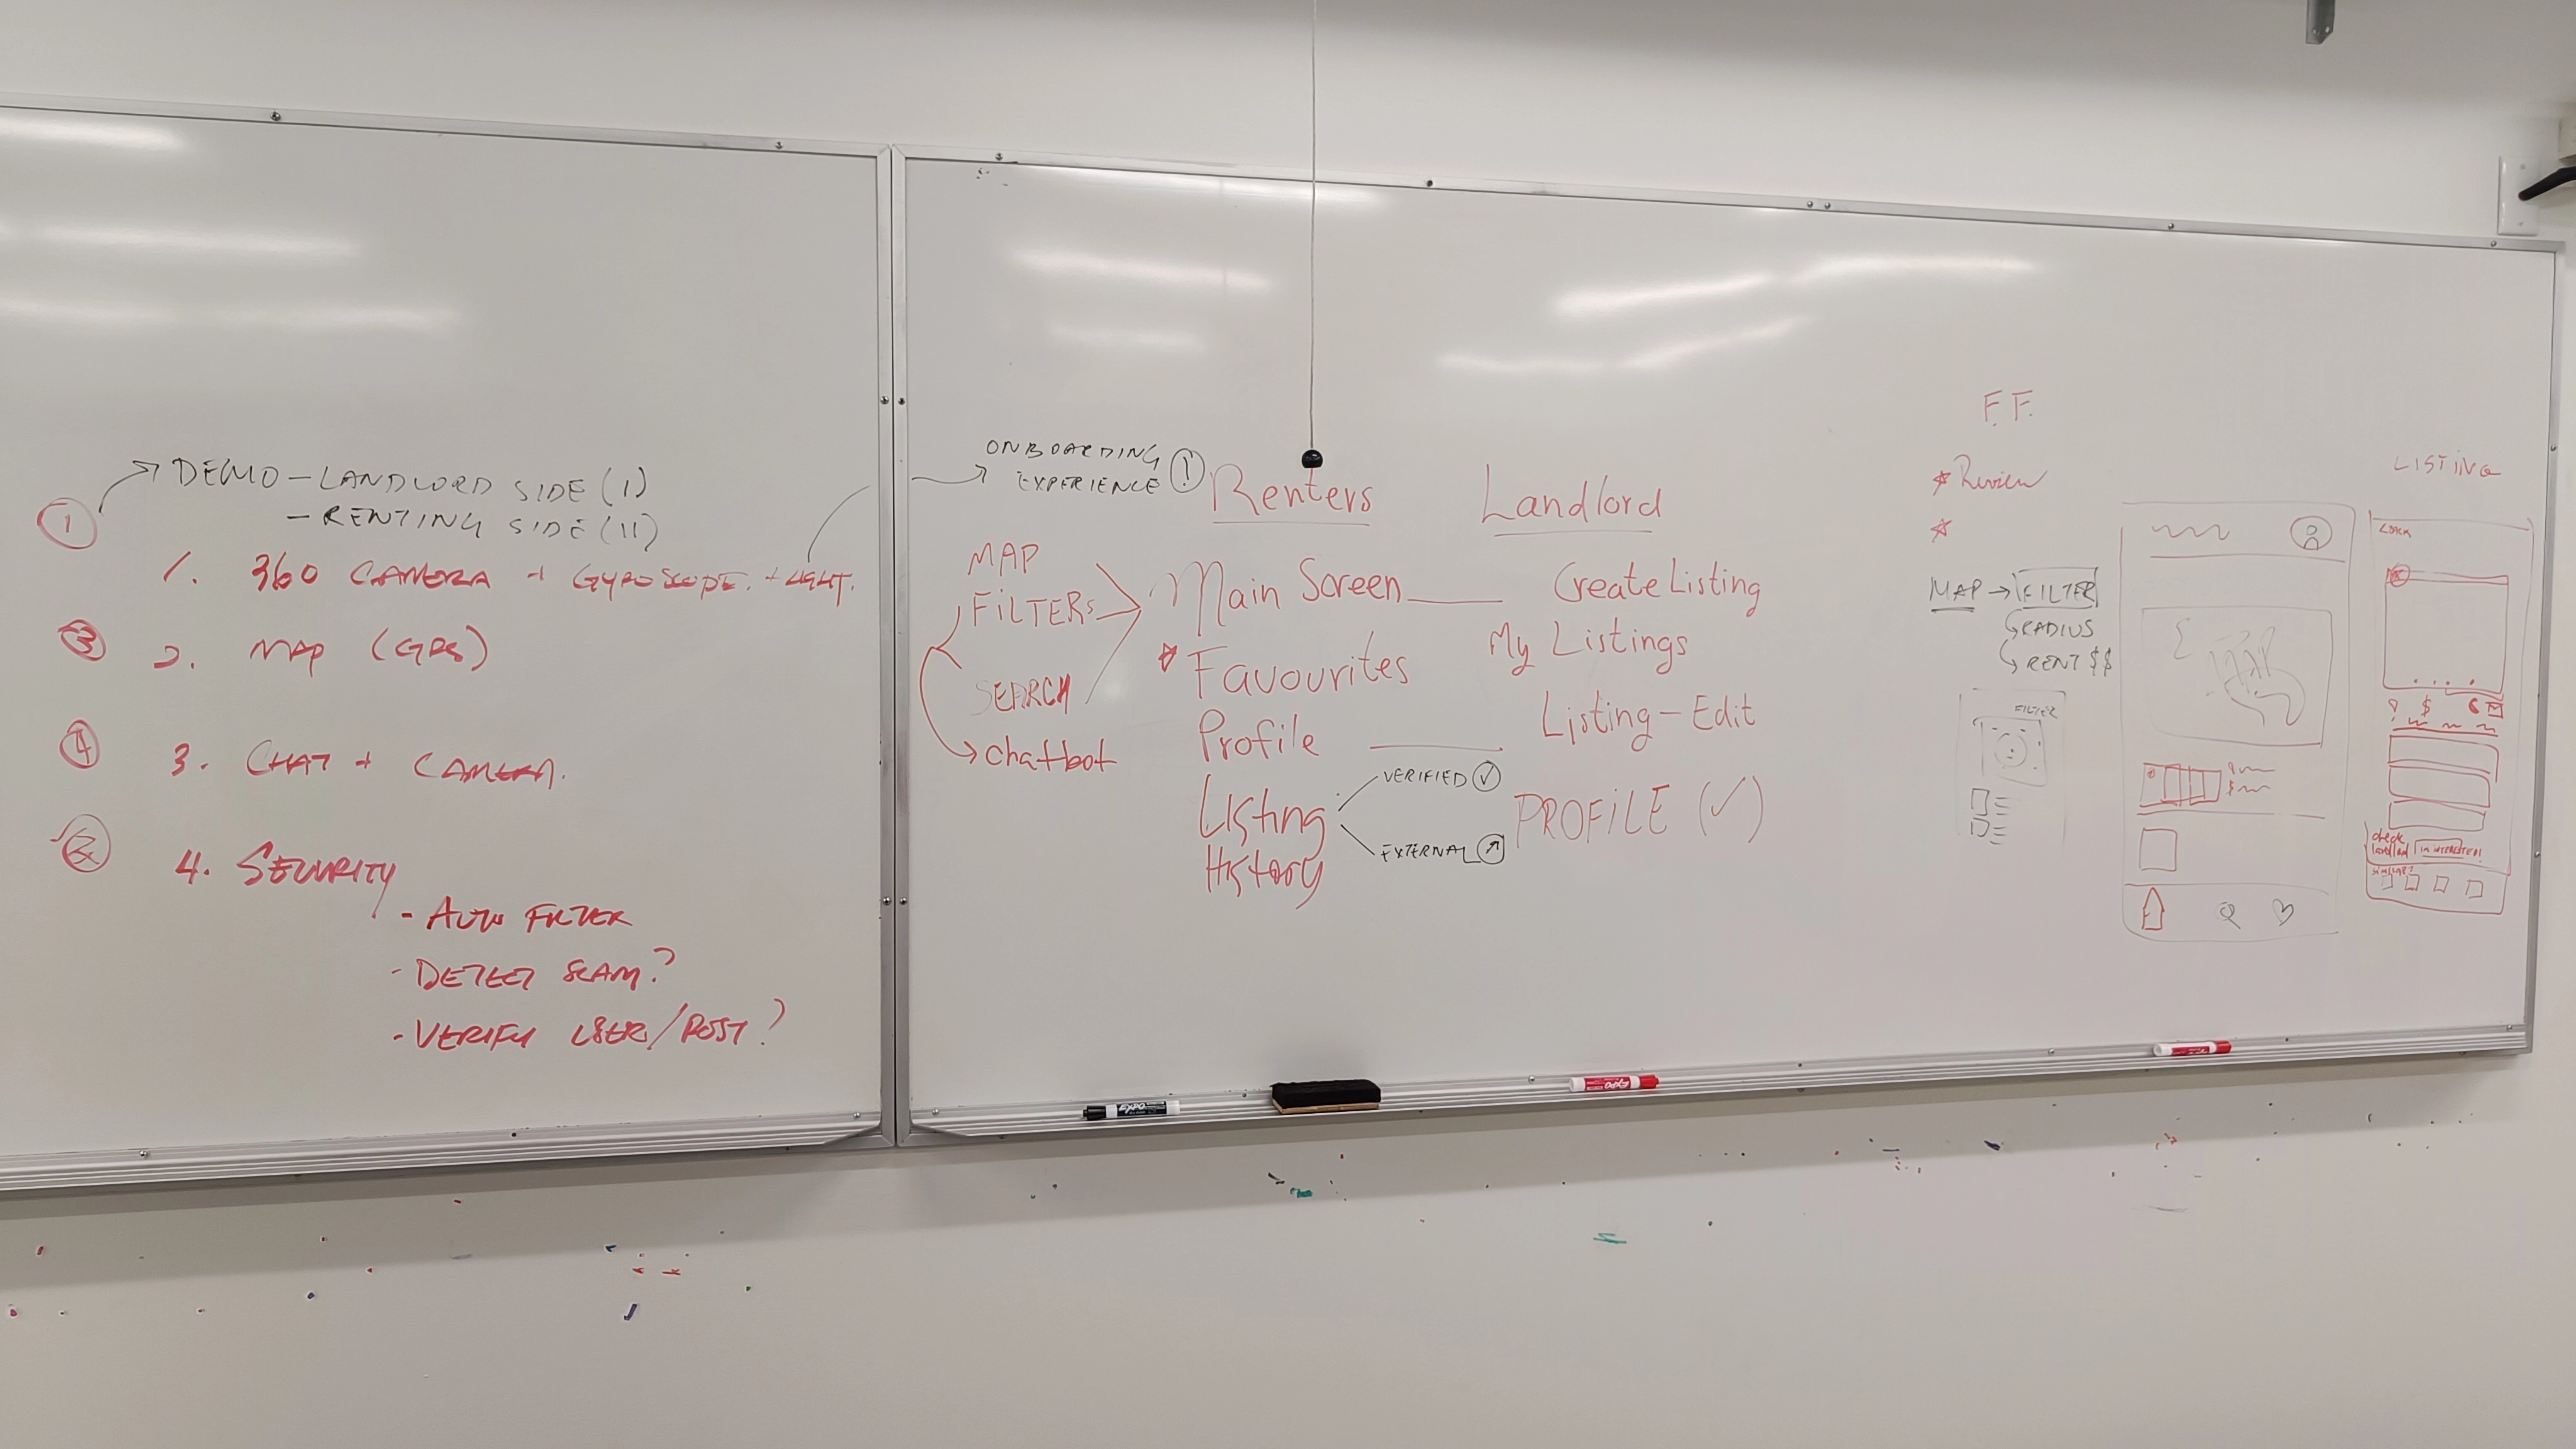 DEMO - LANDLORD SIDE (I)
- RENTING SIDE (II)
1
1. 360 CAMERA + GYROSCOPE. + LIGHT.
3
2. MAP (GPS)
4
3. CHAT + CAMERA.
2
4. SECURITY
- AUTO FILTER
- DETECT SCAM?
- VERIFY USER/POST?
ONBOARDING
EXPERIENCE !
Renters
MAP
FILTERS
SEARCH
chatbot
Main Screen
Favourites
Profile
Listing
History
VERIFIED
EXTERNAL
Landlord
Create Listing
My Listings
Listing - Edit
PROFILE (✓)
F.F.
Review
MAP → FILTER
RADIUS
RENT $$
FILTER
MAP
$
LISTING
$
check
landlord
I'M INTERESTED!
SIMILAR?
EXPO
EXPO